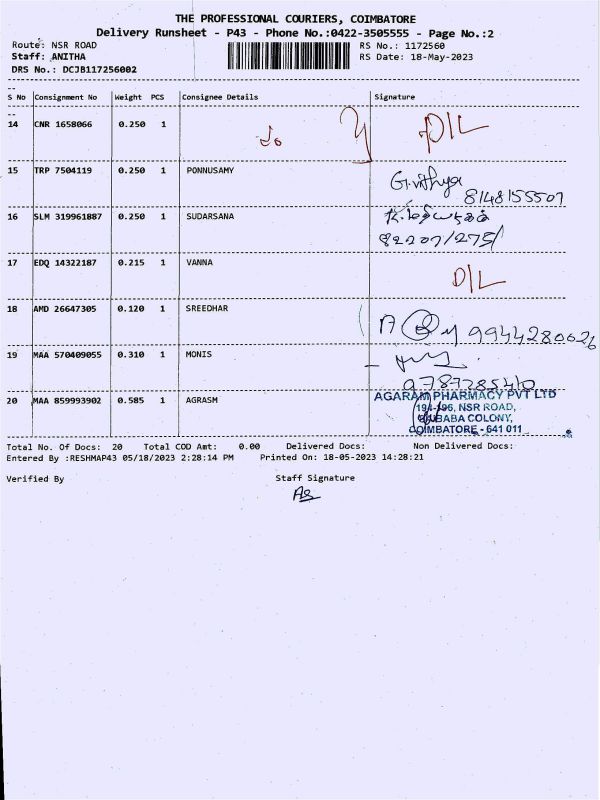 THE PROFESSIONAL COURIERS, COIMBATORE
Delivery Runsheet - P43 - Phone No.:0422-3505555 - Page No.:2
Route: NSR ROAD RS No.: 1172560
Staff: ANITHA RS Date: 18-May-2023
DRS No.: DCJB117256002
S No Consignment No Weight PCS Consignee Details Signature
14 CNR 1658066 0.250 1 D/L
15 TRP 7504119 0.250 1 PONNUSAMY
8148155507
16 SLM 319961887 0.250 1 SUDARSANA
17 EDQ 14322187 0.215 1 VANNA D/L
18 AMD 26647305 0.120 1 SREEDHAR
9944280626
19 MAA 570409055 0.310 1 MONIS
9787285410
20 MAA 859993902 0.585 1 AGRASM AGARAM PHARMACY PVT LTD
NSR ROAD,
COLONY,
COIMBATORE - 641 011
Total No. Of Docs: 20 Total COD Amt: 0.00 Delivered Docs: Non Delivered Docs:
Entered By :RESHMAP43 05/18/2023 2:28:14 PM Printed On: 18-05-2023 14:28:21
Verified By Staff Signature